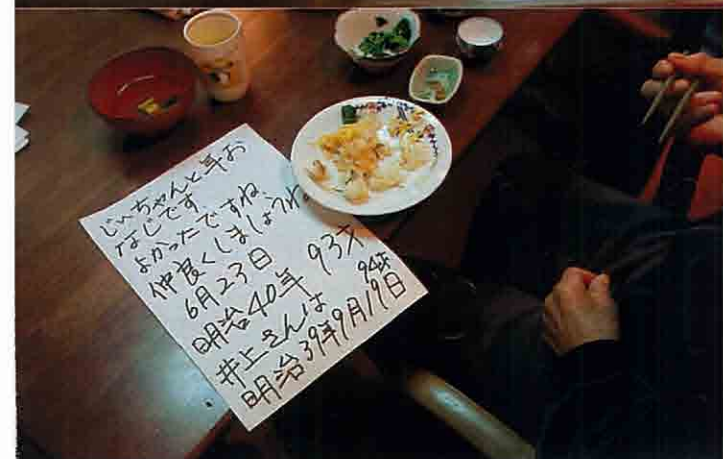 じいちゃんと年お
なじです
よかったですね
仲良くしましょうね。
6月23日
明治40年 93才
井上さんは 94才
明治39年9月19日